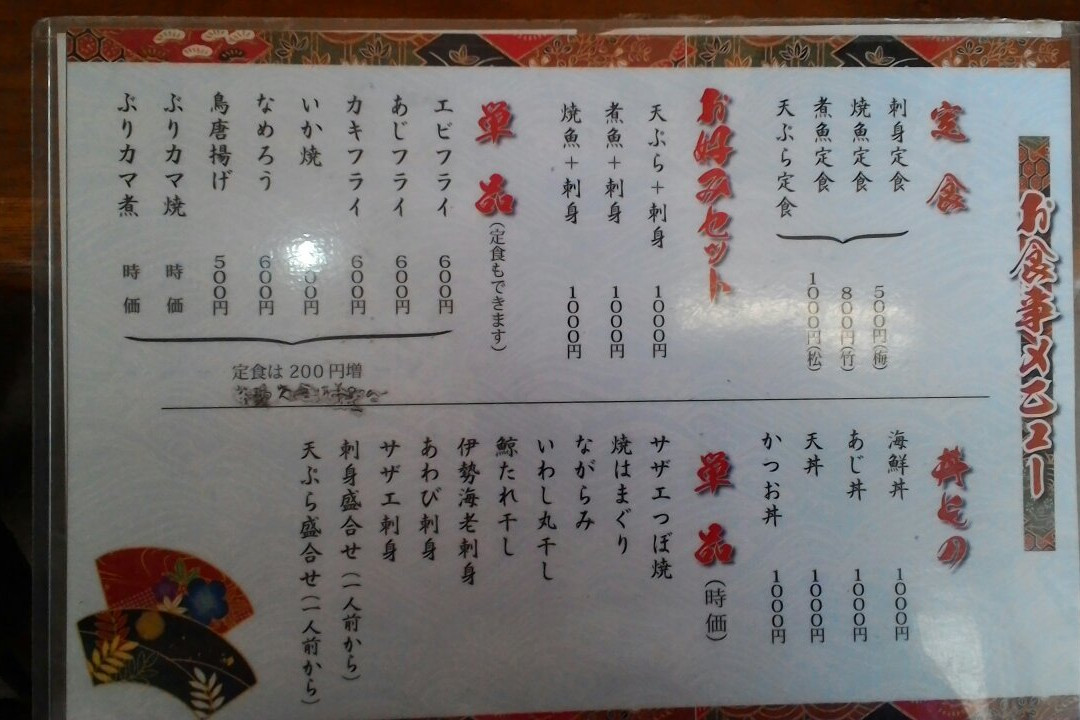 お食事メニュー
定食
刺身定食
焼魚定食
煮魚定食
天ぷら定食
500円(梅)
800円(竹)
1000円(松)
お好みセット
天ぷら+刺身 1000円
煮魚+刺身 1000円
焼魚+刺身 1000円
単品(定食もできます)
エビフライ 600円
あじフライ 600円
カキフライ 600円
いか焼 00円
なめろう 600円
鳥唐揚げ 500円
ぶりカマ焼 時価
ぶりカマ煮 時価
定食は200円増
丼もの
海鮮丼 1000円
あじ丼 1000円
天丼 1000円
かつお丼 1000円
単品(時価)
サザエつぼ焼
焼はまぐり
ながらみ
いわし丸干し
鯨たれ干し
伊勢海老刺身
あわび刺身
サザエ刺身
刺身盛合せ(一人前から)
天ぷら盛合せ(一人前から)